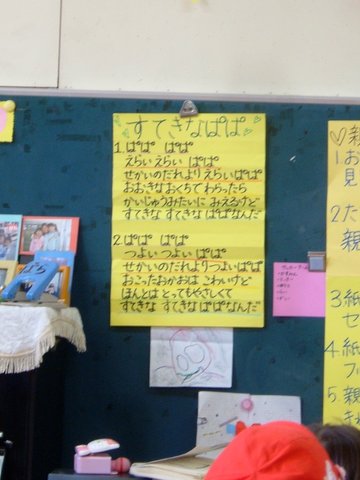 すてきなぱぱ
1. ぱぱ ぱぱ
えらい えらい ぱぱ
せかいのだれより えらいぱぱ
おおきなおくちで わらったら
かいじゅうみたいに みえるけど
すてきな すてきな ぱぱなんだ
2. ぱぱ ぱぱ
つよい つよい ぱぱ
せかいのだれよりつよいぱぱ
おこったおかおは こわいけど
ほんとは とってもやさしくて
すてきな すてきな ぱぱなんだ
♡親
1お
見
2た
親
3紙
セ
4紙
フ
5.親